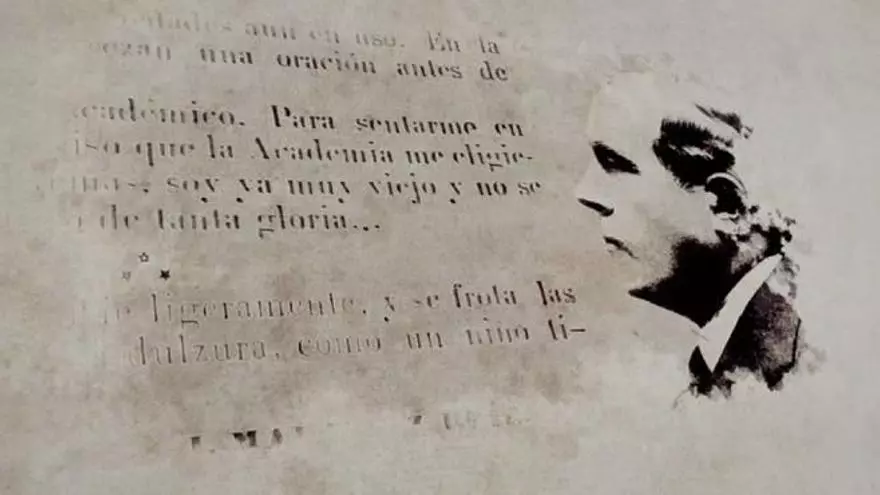 aún en uso. En la
una oración antes de
académico. Para sentarme en
que la Academia me eligie-
soy ya muy viejo y no se
de tanta gloria...
ligeramente, y se frota las
dulzura, como un niño ti-